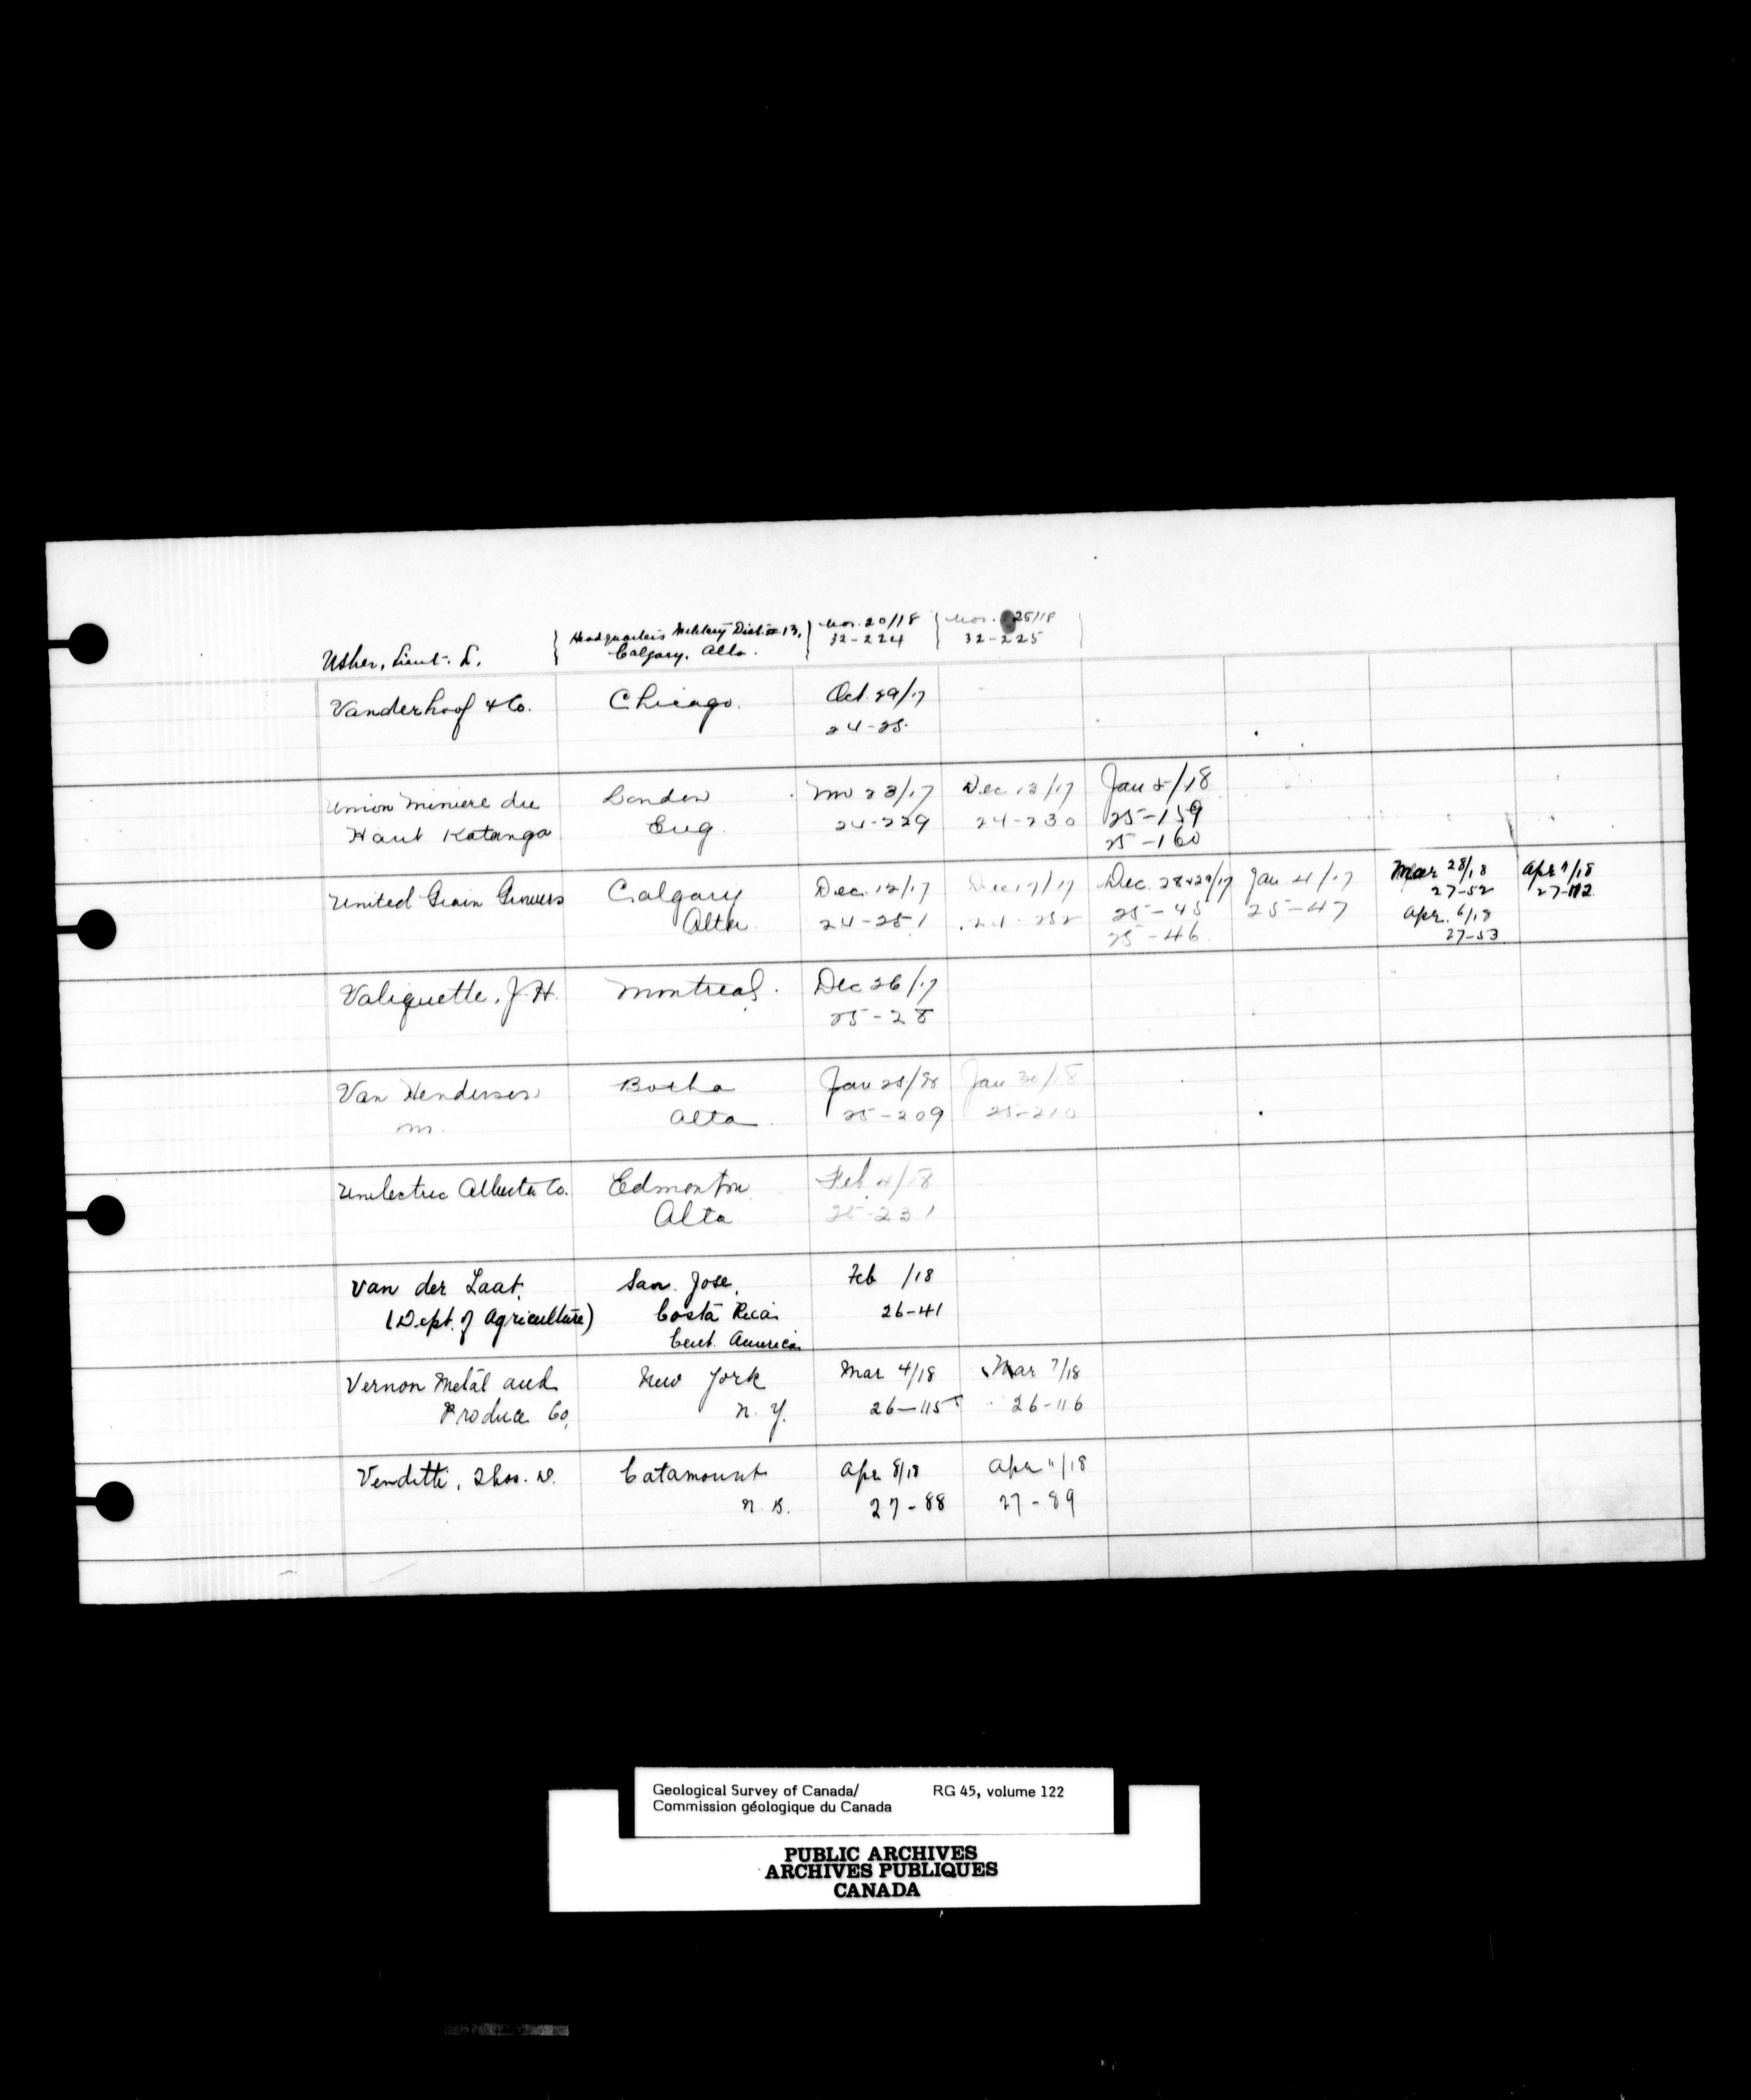 Usher, Lieut. L. Headquarters Military Dist. # 13, Nov. 20/18 Nov. 25/18
Calgary, Alta. 32-224 32-225
Vanderhoof & Co. Chicago. Oct. 29/17
24-25.
Union Miniere du London Nov 23/17 Dec 12/17 Jan 5/18
Haut Katanga Eng. 24-229 24-230 25-159
25-160
United Grain Growers Calgary Dec. 12/17 Dec 17/17 Dec. 28+29/17 Jan 4/17 Mar 28/18 Apr 9/18
Alta. 24-251 24-252 25-45 25-47 27-52 27-112
25-46 Apr. 6/18
27-53
Valiquette, J. H. Montreal. Dec 26/17
25-28
Van Henderson Alta Jan 30/18
M. 25-209 25-210
Unilectric Alberta Co. Edmonton Feb 4/18
Alta 25-231
Van der Laat, San Jose, Feb /18
(Dept. of Agriculture) Costa Rica 26-41
Cent. America
Vernon Metal and New York Mar 4/18 Mar 7/18
Produce Co, N. Y. 26-115 26-116
Venditti, Thos. D. Catamount Apr 8/18 Apr 11/18
N. B. 27-88 27-89
Geological Survey of Canada/ RG 45, volume 122
Commission géologique du Canada
PUBLIC ARCHIVES
ARCHIVES PUBLIQUES
CANADA